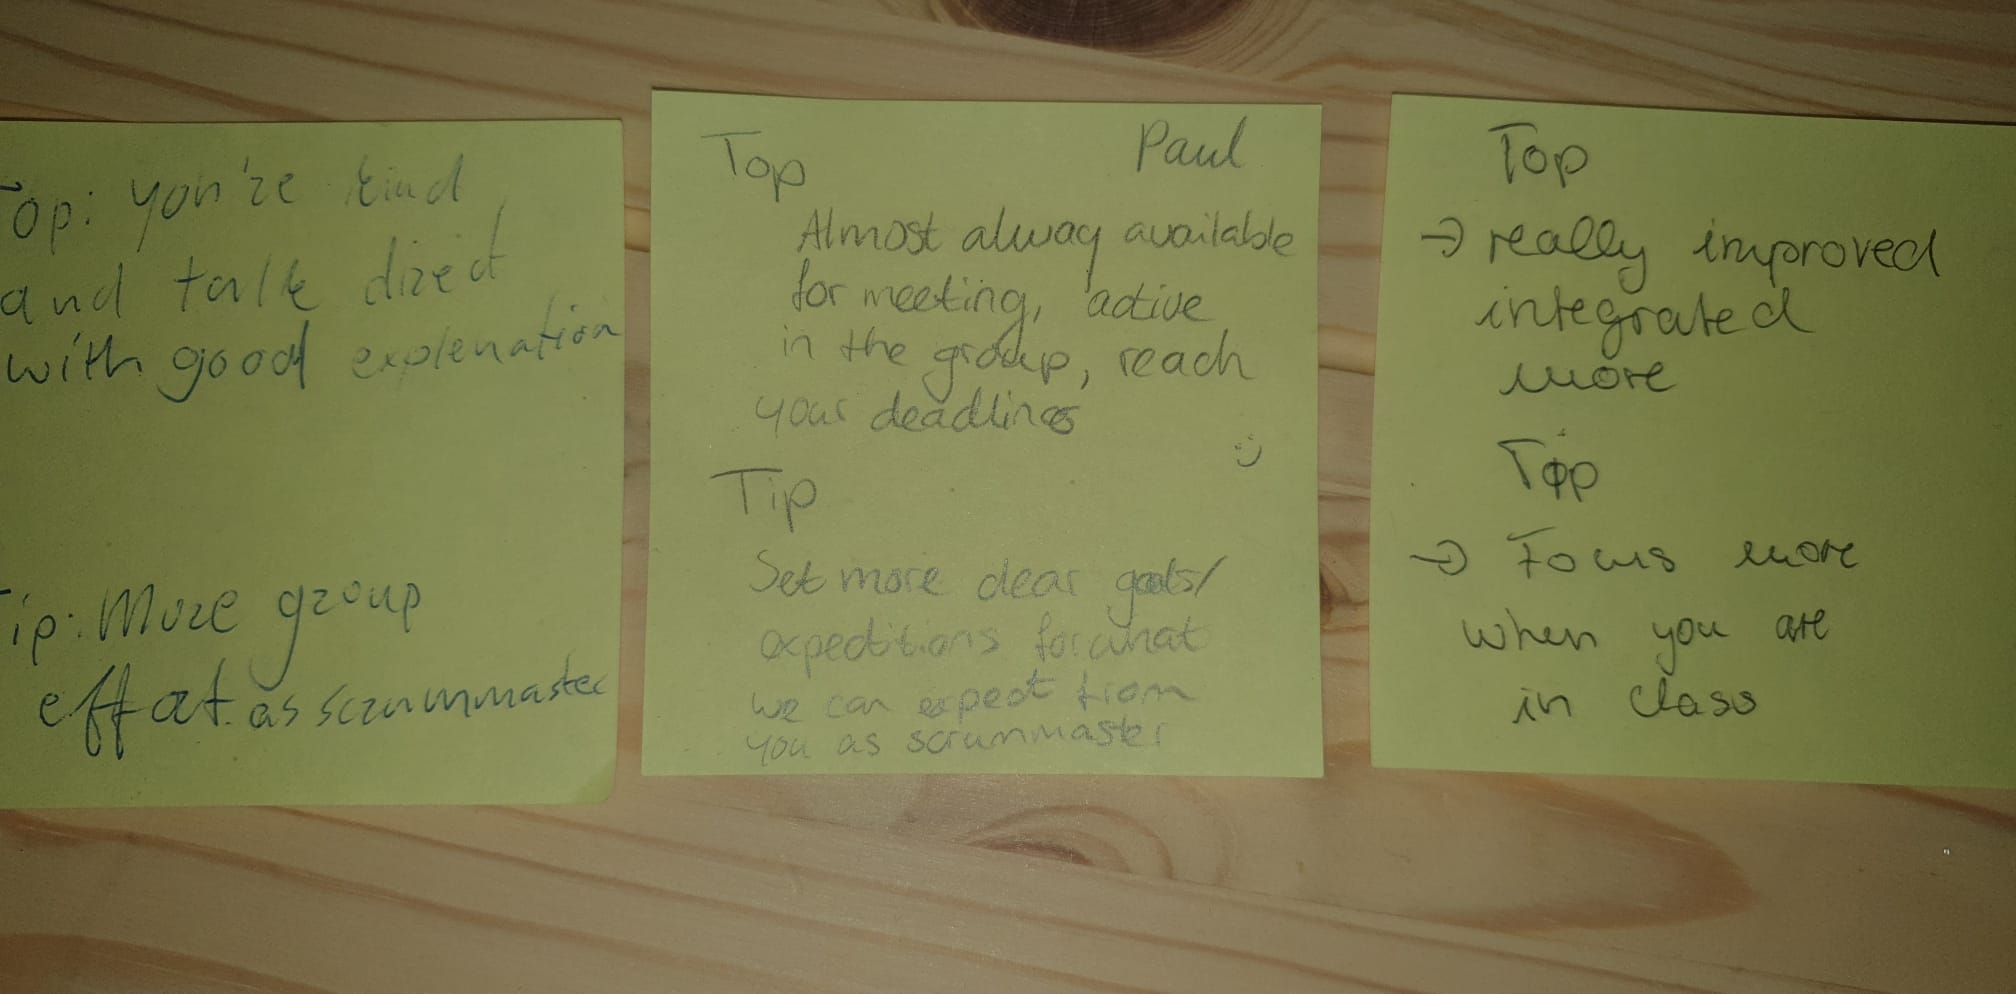 Top: you're kind,
and talk direct
with good explenation
Tip: More group
effort as scrummaster
Top
Paul
Almost alway available
for meeting, active
in the group, reach
your deadlines
:)
Tip
Set more clear goals/
expeditions for what
we can expect from
you as scrummaster
Top
→ really improved
integrated
more
Tip
→ Focus more
when you are
in class